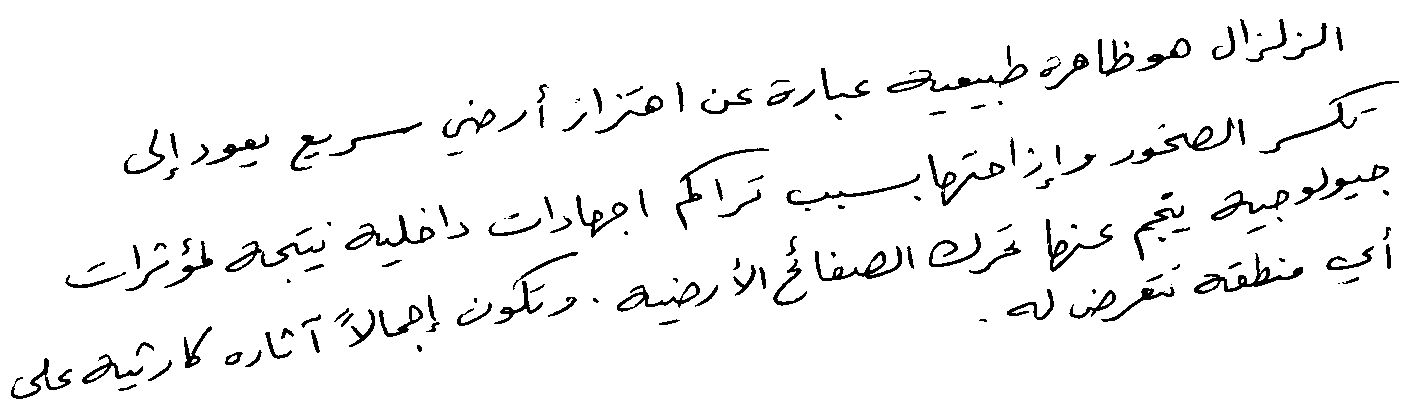 الزلزال هو ظاهرة طبيعية عبارة عن اهتزاز أرضي سريع يعود إلى
تكسر الصخور وإزاحتها بسبب تراكم اجهادات داخلية نتيجة لمؤثرات
جيولوجية ينجم عنها تحرك الصفائح الأرضية. وتكون إجمالاً آثاره كارثية على
أي منطقة تتعرض له.